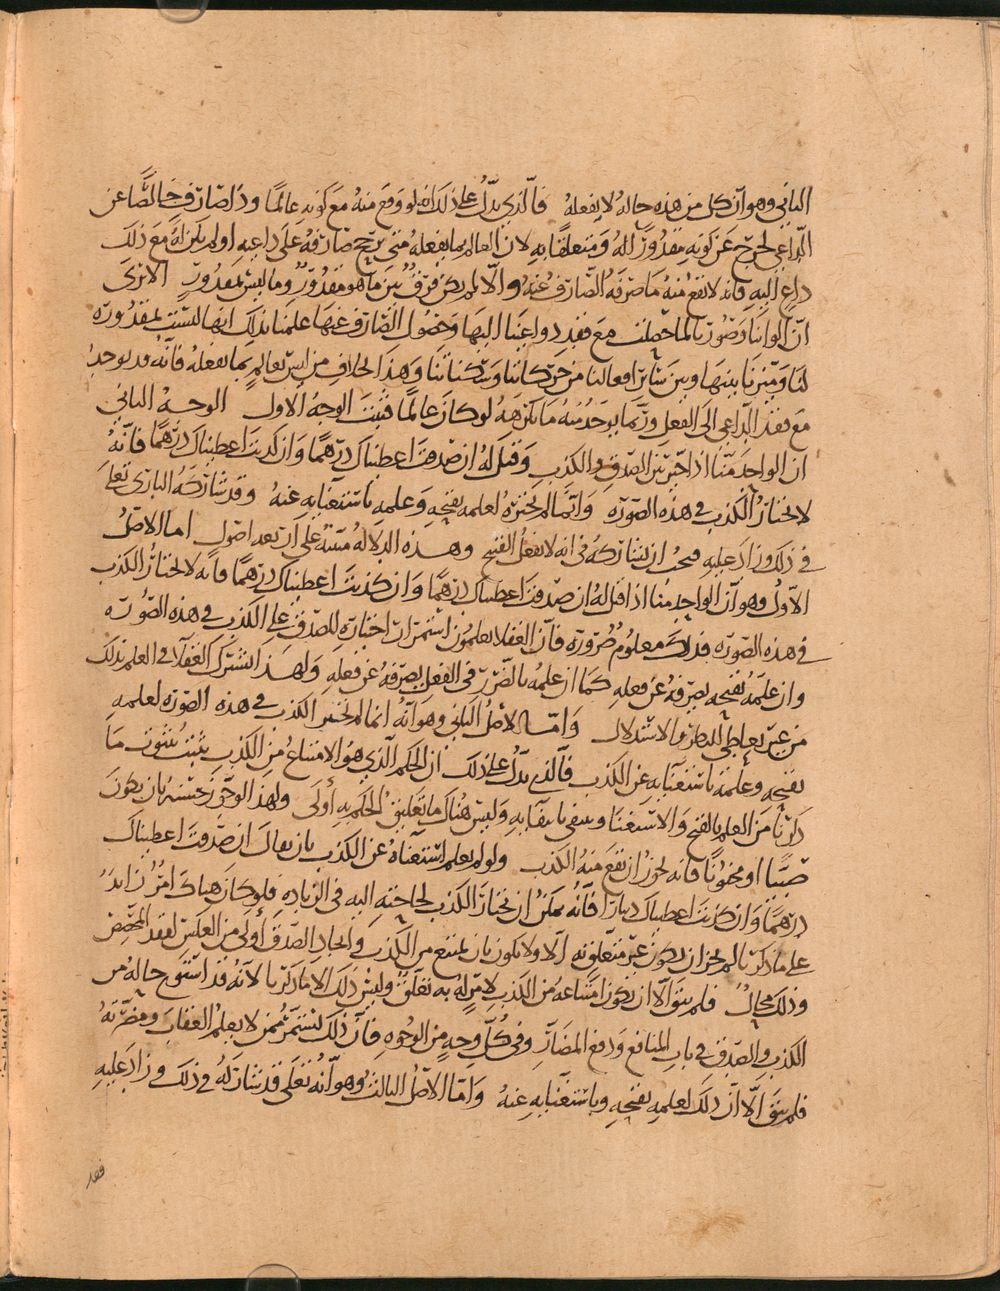 الثاني وهو آن كل من هذه حاله لا يفعله فالذي يدل على ذلك انه لو وقع منه مع كونه عالما وذا صارف خالصا عن
الداعي لخرج عن كونه مقدورا له ومتعلقا به لان العالم بما يفعله متى ترجح صارفه على داعيه او لم يكن له مع ذلك
داع اليه فانه لا يقع منه ما صرفه الصارف عنه والا لم يكن فرق بين ما هو مقدور وما ليس بمقدور الا ترى
ان الواننا وصورنا لما حصلت مع فقد دواعينا اليها وحصول الصارف عنها علمنا بذلك انها ليست بمقدورة
لنا وميزنا بينها وبين سائر افعالنا من حركاتنا وسكناتنا وهذا بخلاف من ليس بعالم بما يفعله فانه قد يوجد
مع فقد الداعي الى الفعل وربما يوجد منه ما يكرهه لو كان عالما فثبت الوجه الاول الوجه الثاني
ان الواحد منا اذا خير بين الصدق والكذب وقيل له ان صدقت اعطيناك درهما وان كذبت اعطيناك درهما فانه
لا يختار الكذب في هذه الصورة وانما لم يختره لعلمه بقبحه وعلمه باستغنائه عنه وقد شاركه الباري تعلى
في ذلك وزاد عليه فيجب ان يشاركه في انه لا يفعل القبيح وهذه الدلالة مبنية على اربعة اصول اما الاصل
الاول وهو آن الواحد منا اذا قيل له ان صدقت اعطيناك درهما وان كذبت اعطيناك درهما فانه لا يختار الكذب
في هذه الصورة فذلك معلوم ضرورة فان العقلا يعلمون استمرار اختياره للصدق على الكذب في هذه الصورة
وان علمه بقبحه يصرفه عن فعله كما ان علمه بالضرر في الفعل يصرفه عن فعله ولهذا اشترك العقلا في العلم بذلك
من غير تعاطي النظر والاستدلال واما الاصل الثاني وهو انه انما لم يختر الكذب في هذه الصورة لعلمه
بقبحه وعلمه باستغنائه عن الكذب فالذي يدل على ذلك ان الحكم الذي هو الامتناع من الكذب يثبت بثبوت ما
ذكرنا من العلم بالقبح والاستغنا وينتفي بانتفائه وليس هناك ما تعليق الحكم به أولى ولهذا لو جوز حسنه بان يكون
صبيا او مجنونا فانه يجوز ان يقع منه الكذب ولو لم يعلم استغناه عن الكذب بان يقال ان صدقت اعطيناك
درهما وان كذبت اعطيناك دينارا فانه يمكن ان يختار الكذب لحاجته اليه في الزيادة فلو كان هناك امر زائد
على ما ذكرنا لم يخل ان يكون غير متعلق به الا ولا يكون بان يمتنع من الكذب وايجاد الصدق أولى من العكس لفقد المخصص
وذلك محال فلم يبق الا ان يكون امتناعه من الكذب لامر له به تعلق وليس ذلك الا ما ذكرنا لانه قد استوى حاله من
الكذب والصدق في باب المنافع ودفع المضار وفي كل وجه من الوجوه فان ذلك يستمر فيمن لا يعلم العقاب ومضرته
فلم يبق الا ان ذلك لعلمه بقبحه وباستغنائه عنه واما الاصل الثالث وهو أنه تعلى قد شاركه في ذلك وزاد عليه
فقد